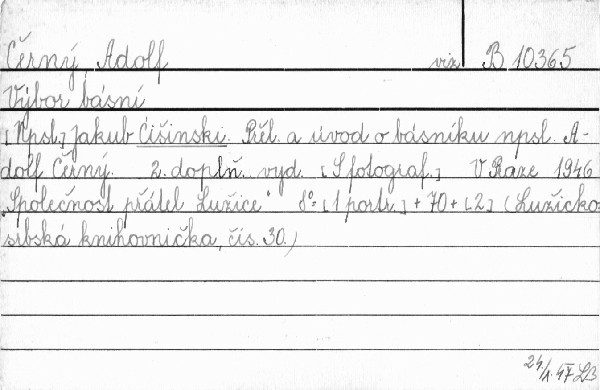 Černý Adolf viz B 10365
Výbor básní
[Npsl.] Jakub Ćišinski. Přel. a úvod o básníku npsl. A-
dolf Černý. 2. doplň. vyd. [S fotograf.] V Praze 1946
"Společnost přátel Lužice" 8° [1 portr.] + 70 + [2] (Lužicko-
srbská knihovnička, čís. 30.)
24/1. 47 LB